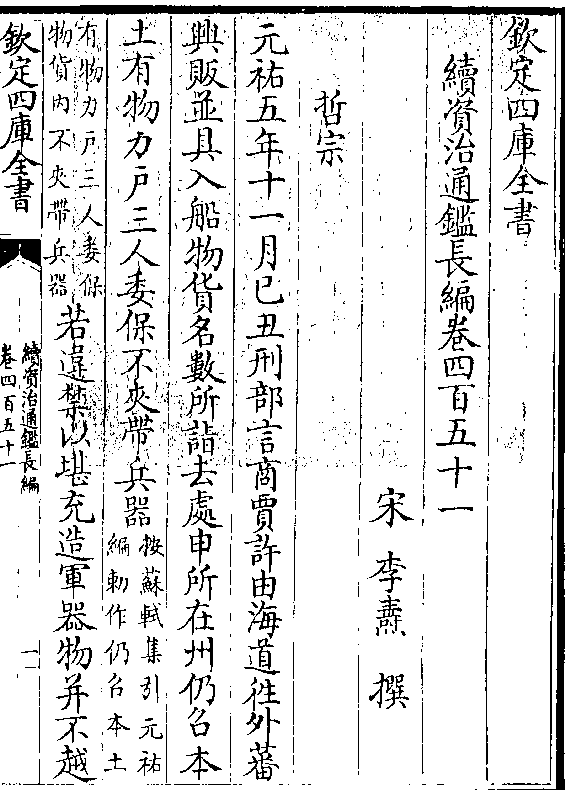 欽定四庫全書
續資治通鑑長編卷四百五十一
宋 李燾 撰
哲宗
元祐五年十一月己丑刑部言商賈許由海道徃外蕃
興販並具入船物貨名數所詣去處申所在州仍召本
土有物力戶三人委保不夾帶兵器
按蘇軾集引元祐
編勅作仍召本土
有物力戶三人委保
物貨內不夾帶兵器
若違禁以堪充造軍器物并不越
欽定四庫全書
續資治通鑑長編
卷四百五十一
一